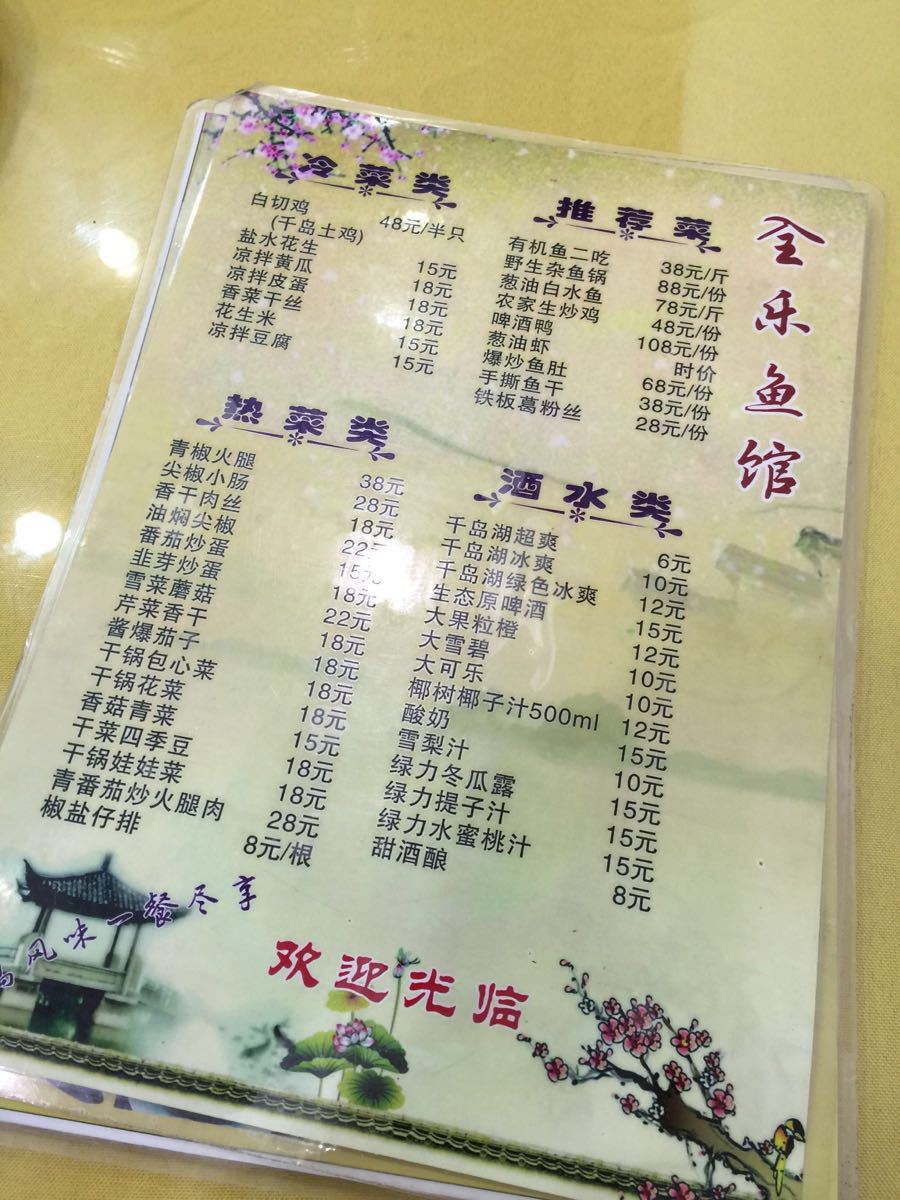 全乐鱼馆
冷菜类
白切鸡
(千岛土鸡) 48元/半只
盐水花生 15元
凉拌黄瓜 18元
凉拌皮蛋 18元
香菜干丝 18元
花生米 15元
凉拌豆腐 15元
推荐菜
有机鱼二吃 38元/斤
野生杂鱼锅 88元/份
葱油白水鱼 78元/斤
农家生炒鸡 48元/份
啤酒鸭 108元/份
葱油虾 时价
爆炒鱼肚 68元/份
手撕鱼干 38元/份
铁板葛粉丝 28元/份
热菜类
青椒火腿 38元
尖椒小肠 28元
香干肉丝 18元
油焖尖椒 22元
番茄炒蛋 15元
韭芽炒蛋 18元
雪菜蘑菇 22元
芹菜香干 18元
酱爆茄子 18元
干锅包心菜 18元
干锅花菜 18元
香菇青菜 15元
干菜四季豆 18元
干锅娃娃菜 18元
青番茄炒火腿肉 28元
椒盐仔排 8元/根
酒水类
千岛湖超爽 6元
千岛湖冰爽 10元
千岛湖绿色冰爽 12元
生态原啤酒 15元
大果粒橙 12元
大雪碧 10元
大可乐 10元
椰树椰子汁500ml 12元
酸奶 15元
雪梨汁 10元
绿力冬瓜露 15元
绿力提子汁 15元
绿力水蜜桃汁 15元
甜酒酿 8元
风味一餐尽享
欢迎光临